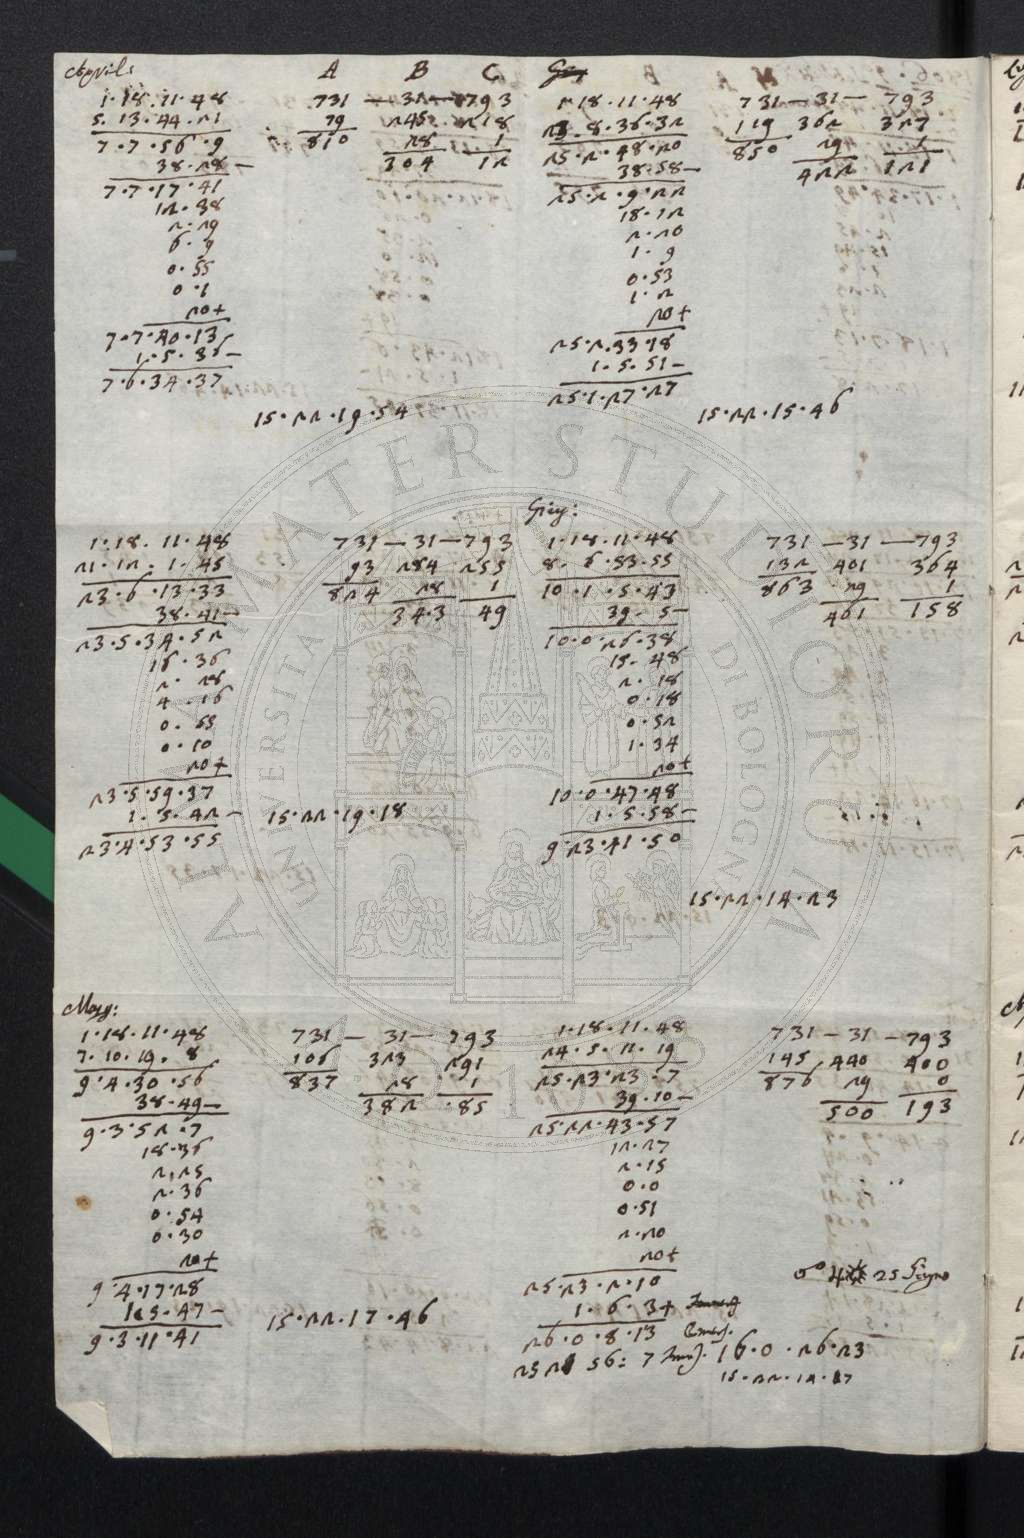 Aprile
A B C
1·18·11·48
5·13·44·21
7·7·56·9
38·28—
7·7·17·41
12·38
2·29
6·9
0·55
0·1
20+
7·7·40·13
1·5·36—
7·6·34·37
731 — 31 — 793
79 245 218
810 28 1
304 12
15·22·19·54
1·18·11·48
23·8·36·32
25·2·48·20
38·58—
25·2·9·22
18·12
2·20
1·9
0·53
1·2
20+
25·2·33·18
1·5·51—
25·1·27·27
731 — 31 — 793
119 362 327
850 29 1
422 121
15·22·15·46
1·18·11·48
21·12·1·45
23·6·13·33
38·41—
23·5·34·52
16·36
2·28
4·16
0·55
0·10
20+
23·5·59·37
1·5·42—
23·4·53·55
731 — 31 — 793
93 284 255
824 28 1
343 49
15·22·19·18
Giug:
1·18·11·48
8·6·53·55
10·1·5·43
39·5—
10·0·26·38
15·48
2·18
0·18
0·52
1·34
20+
10·0·47·48
1·5·58—
9·23·41·50
731 — 31 — 793
132 401 364
863 29 1
461 158
15·22·14·23
Magg:
1·18·11·48
7·10·19·8
9·4·30·56
38·49—
9·3·52·7
18·36
2·25
2·36
0·54
0·30
20+
9·4·17·28
1·5·47—
9·3·11·41
731 — 31 — 793
106 323 291
837 28 1
382 85
15·22·17·46
1·18·11·48
24·5·11·19
25·23·23·7
39·10—
25·22·43·57
12·27
2·15
0·0
0·51
2·20
20+
25·23·2·10
1·6·3+
26·0·8·13
731 — 31 — 793
145 440 400
876 29 0
500 193
16·0·26·23
ALMA MATER STUDIORUM
UNIVERSITÀ DI BOLOGNA